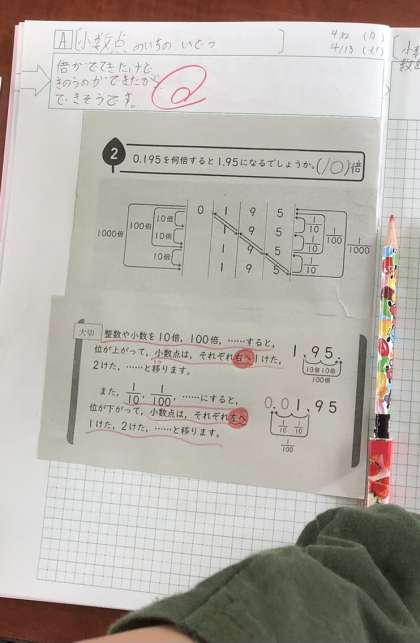 A 小数点のいちの いどう
4/12 (月)
4/13 (火)
倍がでてきたけど、
きのうのができたから
できそうです。
2 0.195を何倍すると1.95になるでしょうか。(10)倍
1000倍 100倍 10倍 10倍 10倍
0 1 9 5
1 9 5
1 9 5
1 9 5
1/10 1/10 1/10 1/100 1/1000
大切 整数や小数を10倍，100倍，……すると，
位が上がって，小数点は，それぞれ右へ1けた，
2けた，……と移ります。
1.95.
10倍 10倍
100倍
また，1/10，1/100，……にすると，
位が下がって，小数点は，それぞれ左へ
1けた，2けた，……と移ります。
0.01.95
1/10 1/10
1/100